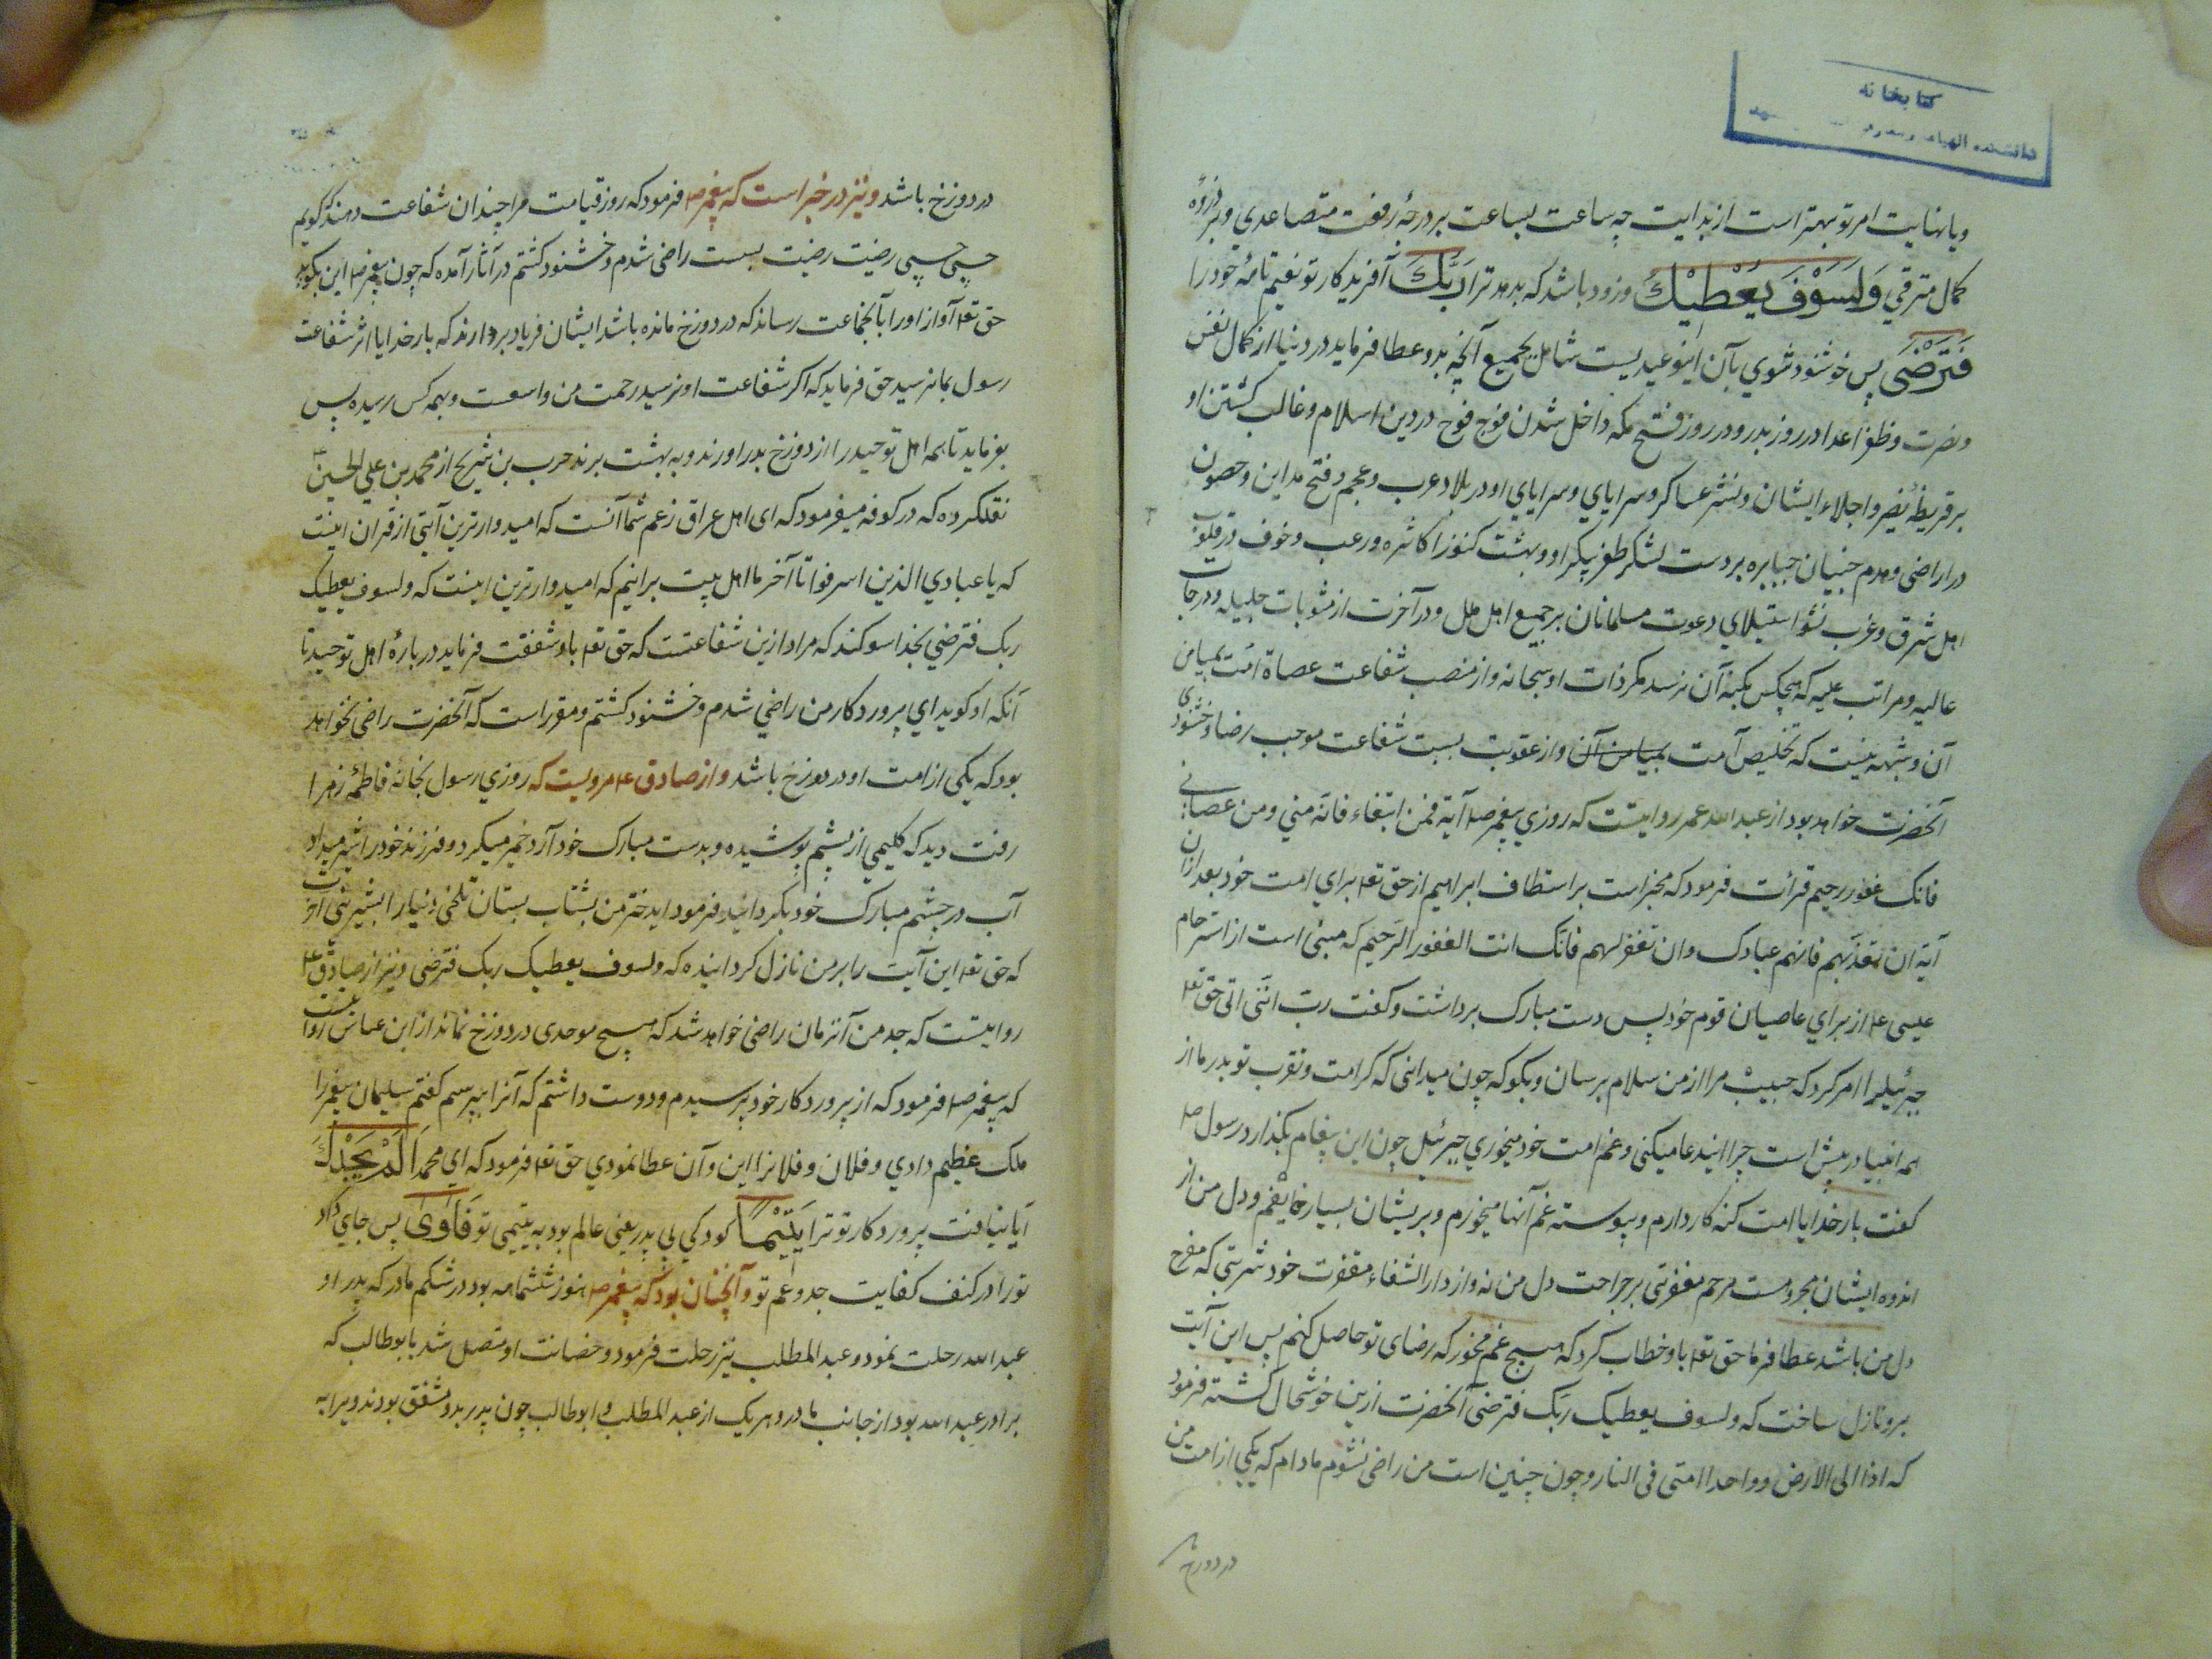 کتابخانه
دانشکده الهیات و معارف
و یا نهایت امر تو بهتر است از بدایت چه ساعت بساعت بر درجهٔ رفعت متصاعدی و بر ذروهٔ
کمال مترقی وَلَسَوْفَ یُعْطِیْكَ و زود باشد که بدهد ترا رَبُّكَ آفریدکار تو نعیم تامهٔ خود را
فَتَرْضٰی پس خوشنود شوی بآن اینوعیدیست شامل بجمیع آنچه بدو عطا فرماید در دنیا از کمال نفس
و نصرت و ظفر اعدا در روز بدر و در روز فتح مکه داخل شدن فوج فوج در دین اسلام و غالب کشتن او
بر قریظهٔ نضیر و اجلاء ایشان و نشر عساکر و سرایای و سرایای او در بلاد عرب و عجم و فتح مداین و حصون
در اراضی و هدم جنبیان جبابره بر دست لشکر ظفر پیکر او و بهشت کنوز اکاثره و رعب و خوف در قلوب
اهل شرق و غرب نشو استیلای دعوت مسلمانان بر جمیع اهل ملل و در آخرت از مثوبات جلیله و درجات
عالیه و مراتب علیه که هیچکس بکنه آن نرسد مکر ذات او سبحانه و از منصب شفاعت عصاة امت بمیامن
آن و شبهه نیست که تخلیص آمت بمیامن آن و از عقوبت بسبب شفاعت موجب رضا و خشنودی
آنحضرت خواهد بود از عبد الله عمر روایتست که روزی پیغمبر ص آیة فمن ابتغاء فانه منی و من عصانی
فانک غفور رحیم قرائت فرمود که مخبر است بر استطاف ابراهیم از حق تع برای امت خود بعد ازان
آیة ان تعذبهم فانهم عبادک و ان تغفر لهم فانک انت الغفور الرحیم که مبنی است از استرحام
عیسی ع از برای عاصیان قوم خود پس دست مبارک برداشت و کفت رب اُمتی اُمتی حق تع
جبرئیل را امر کرد که حبیبت مرا از من سلام برسان و بکو که چون میدانی که کرامت و تقرب تو بدر ما از
همه انبیا در پیش است چرا ایندعا میکنی و غم امت خود میخوری جبرئیل چون این پیغام بکذارد رسول ص
کفت بار خدایا امت کنه کار دارم و پیوسته غم آنها میخورم و پریشان بسیار خایفم و دل من از
اندوه ایشان مجروحست مرحم مغفرتی بر جراحت دل من نه و از دار الشفاء مقفرت خود شربتی که مفرح
دل من باشد عطا فرما حق تع باو خطاب کرد که هیچ غم مخور که رضای تو حاصل کنم پس این آیت
برو نازل ساخت که و لسوف یعطیک ربک فترضی آنحضرت ازین خوشحال کشته فرمود
که اذا الی الارض و واحدا امتی فی النار و چون چنین است من راضی نشوم مادام که یکی از امت من
در دوزخ
در دوزخ باشد و نیز در خبر است که پیغمبر ص فرمود که روز قیامت مرا چندان شفاعت دهند که کویم
حسبی حسبی رضیت رضیت بست راضی شدم و خشنود کشتم در آثار آمده که چون پیغمبر ص این بکوید
حق تع آواز او را بآنجماعت رساند که در دوزخ مانده باشد ایشان فریاد بردارند که بار خدایا اثر شفاعت
رسول بما نرسید حق فرماید که اکر شفاعت او نرسید رحمت من واسعست و بهمه کس رسیده پس
بفرماید تا همه اهل توحید را از دوزخ بدر اورند و به بهشت برند حرب بن شریح از محمد بن علی الحسین
نقلکرده که در کوفه میفرمود که ای اهل عراق زعم شما آنست که امیدوارترین آیتی از قران اینست
که یا عبادی الذین اسرفوا تا آخر ما اهل بیت برانیم که امیدوارترین اینست که و لسوف یعطیک
ربک فترضی بخدا سوکند که مراد ازین شفاعتست که حق تع باو شفقت فرماید در بارهٔ اهل توحید تا
آنکه او کوید ای پروردکار من راضی شدم و خشنود کشتم و مقرر است که آنحضرت راضی نخواهد
بود که یکی از امت او در دوزخ باشد و از صادق ع مرویست که روزی رسول بخانهٔ فاطمهٔ زهرا
رفت دید که کلیمی از پشم پوشیده و بدست مبارک خود آرد خمیر میکرد و فرزند خود را شیر میداد
آب در چشم مبارک خود بکردانید فرمود ایدختر من بشتاب بستان تلخی دنیا را بشیرینی آخرت
که حق تع این آیت را بر من نازل کردانیده که و لسوف یعطیک ربک فترضی و نیز از صادق ع
روایتست که جد من آنزمان راضی خواهد شد که هیچ موحدی در دوزخ نماند از ابن عباس روایتست
که پیغمبر ص فرمود که از پروردکار خود پرسیدم و دوست داشتم که آنرا بپرسم کفتم سلیمان پیغمبر را
ملک عظیم دادی و فلان و فلانرا این و آن عطا نمودی حق تع فرمود که ای محمد اَلَمْ یَجِدْكَ
آیا نیافت پروردکار تو ترا یَتِیْمًا کودکی بی پدر یعنی عالم بود به یتیمی تو فَاٰوٰی پس جای داد
تو را در کنف کفایت جد و عم تو و آنچنان بود که پیغمبر ص هنوز ششماهه بود در شکم مادر که پدر او
عبد الله رحلت نمود و عبد المطلب نیز رحلت فرمود و حضانت او متصل شد بابوطالب که
برادر عبد الله بود از جانب مادر و هر یک از عبد المطلب و ابوطالب چون پدر بدو مشفق بودند و یرا به